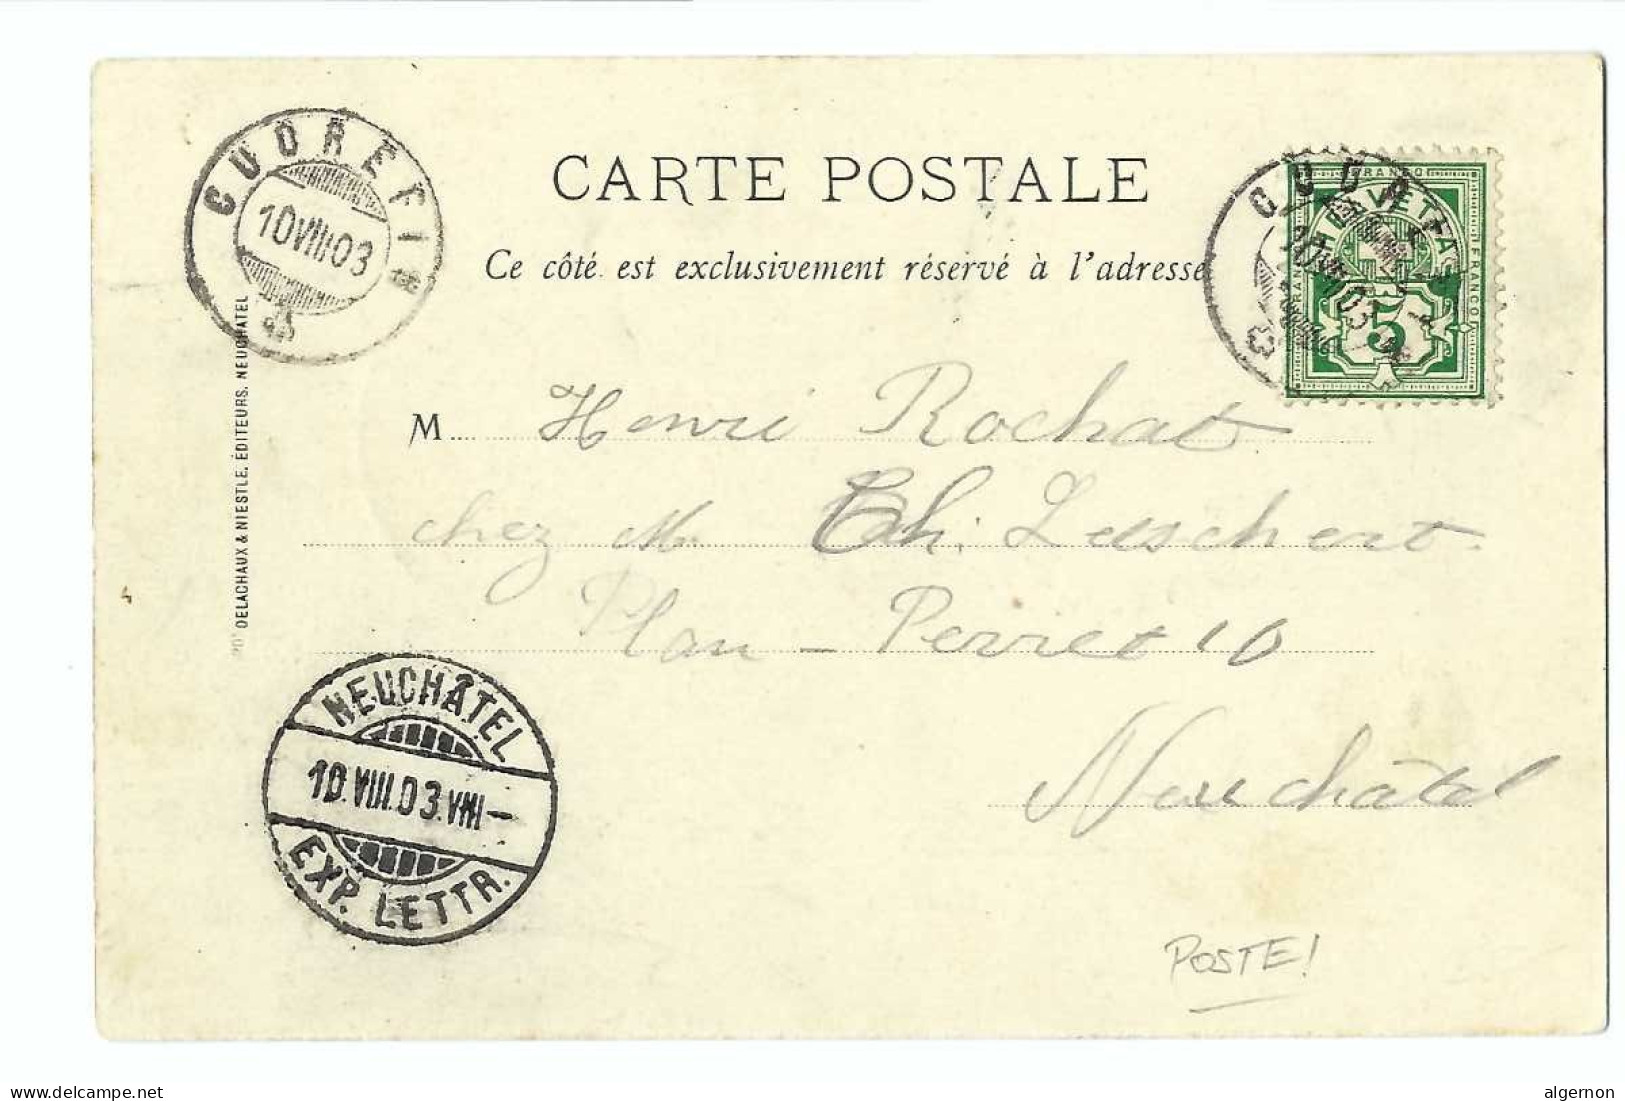 CUDREFIN
10 VIII 03
CARTE POSTALE
Ce côté est exclusivement réservé à l'adresse
CUDREFIN
10 VIII 03
FRANCO
HELVETIA
FRANCO
FRANCO
5
DELACHAUX & NIESTLE, ÉDITEURS, NEUCHATEL
M Henri Rochat
chez M. Ch.
Plan - Perret 10
Neuchâtel
NEUCHÂTEL
10.VIII.03.VIII—
EXP. LETTR.
POSTE!
delcampe.net
algernon